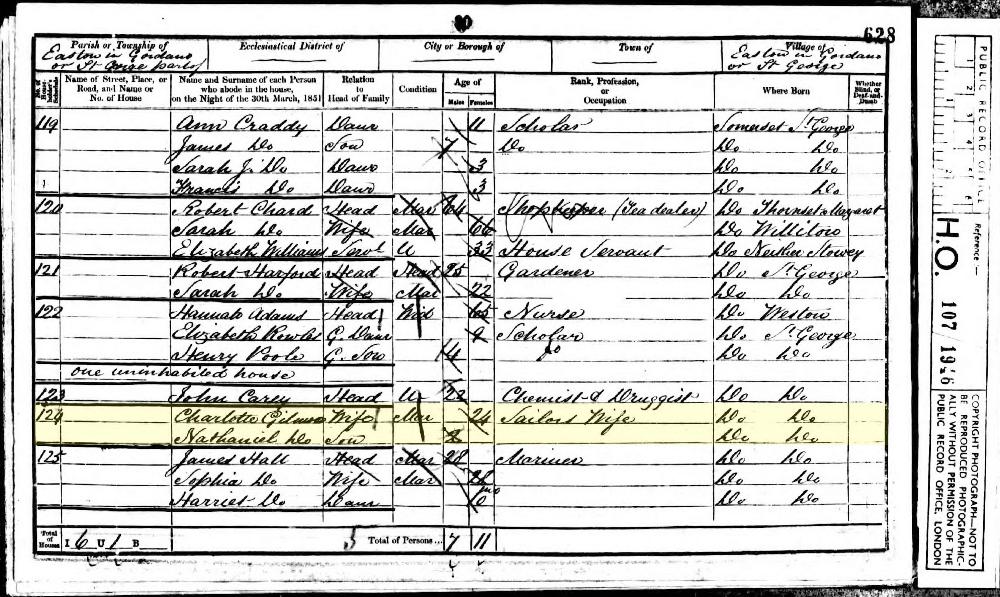 628
Parish or Township of Ecclesiastical District of City or Borough of Town of Village of
Easton in Gordano Easton in Gordano
or St part of or St George
Name of Street, Place, or Road, and Name or No. of House Name and Surname of each Person who abode in the house, on the Night of the 30th March, 1851 Relation to Head of Family Condition Age of Males Females Rank, Profession, or Occupation Where Born Whether Blind, or Deaf-and-Dumb
119 Ann Craddy Daur 11 Scholar Somerset St George
James Do Son 7 Do Do Do
Sarah J. Do Daur 3 Do Do
Francis Do Daur 3 Do Do
120 Robert Chard Head Mar 64 Shopkeeper (Tea dealer) Do
Sarah Do Wife Mar 66 Do Williton
Elizabeth Williams Servt U 33 House Servant Do Nether Stowey
121 Robert Harford Head 25 Gardener Do St George
Sarah Do Wife Mar 22 Do Do
122 Hannah Adams Head Wid 65 Nurse Do Weston
Elizabeth Rowles G. Daur 9 Scholar Do St George
Henry Poole G. Son 4 Do Do Do
one uninhabited house
123 John Carey Head U 22 Chemist & Druggist Do Do
124 Charlotte Gilmore Wife Mar 24 Sailors Wife Do Do
Nathaniel Do Son 2 Do Do
125 James Hall Head Mar 28 Mariner Do Do
Sophia Do Wife Mar Do Do
Harriet Do Daur Do Do
Total of Houses I 6 U 1 B 5 Total of Persons... 7 11
PUBLIC RECORD OFFICE
1 2 3 4 5 6
Reference :-
H.O. 107 1946
COPYRIGHT PHOTOGRAPH—NOT TO BE REPRODUCED PHOTOGRAPHICALLY WITHOUT PERMISSION OF THE PUBLIC RECORD OFFICE, LONDON